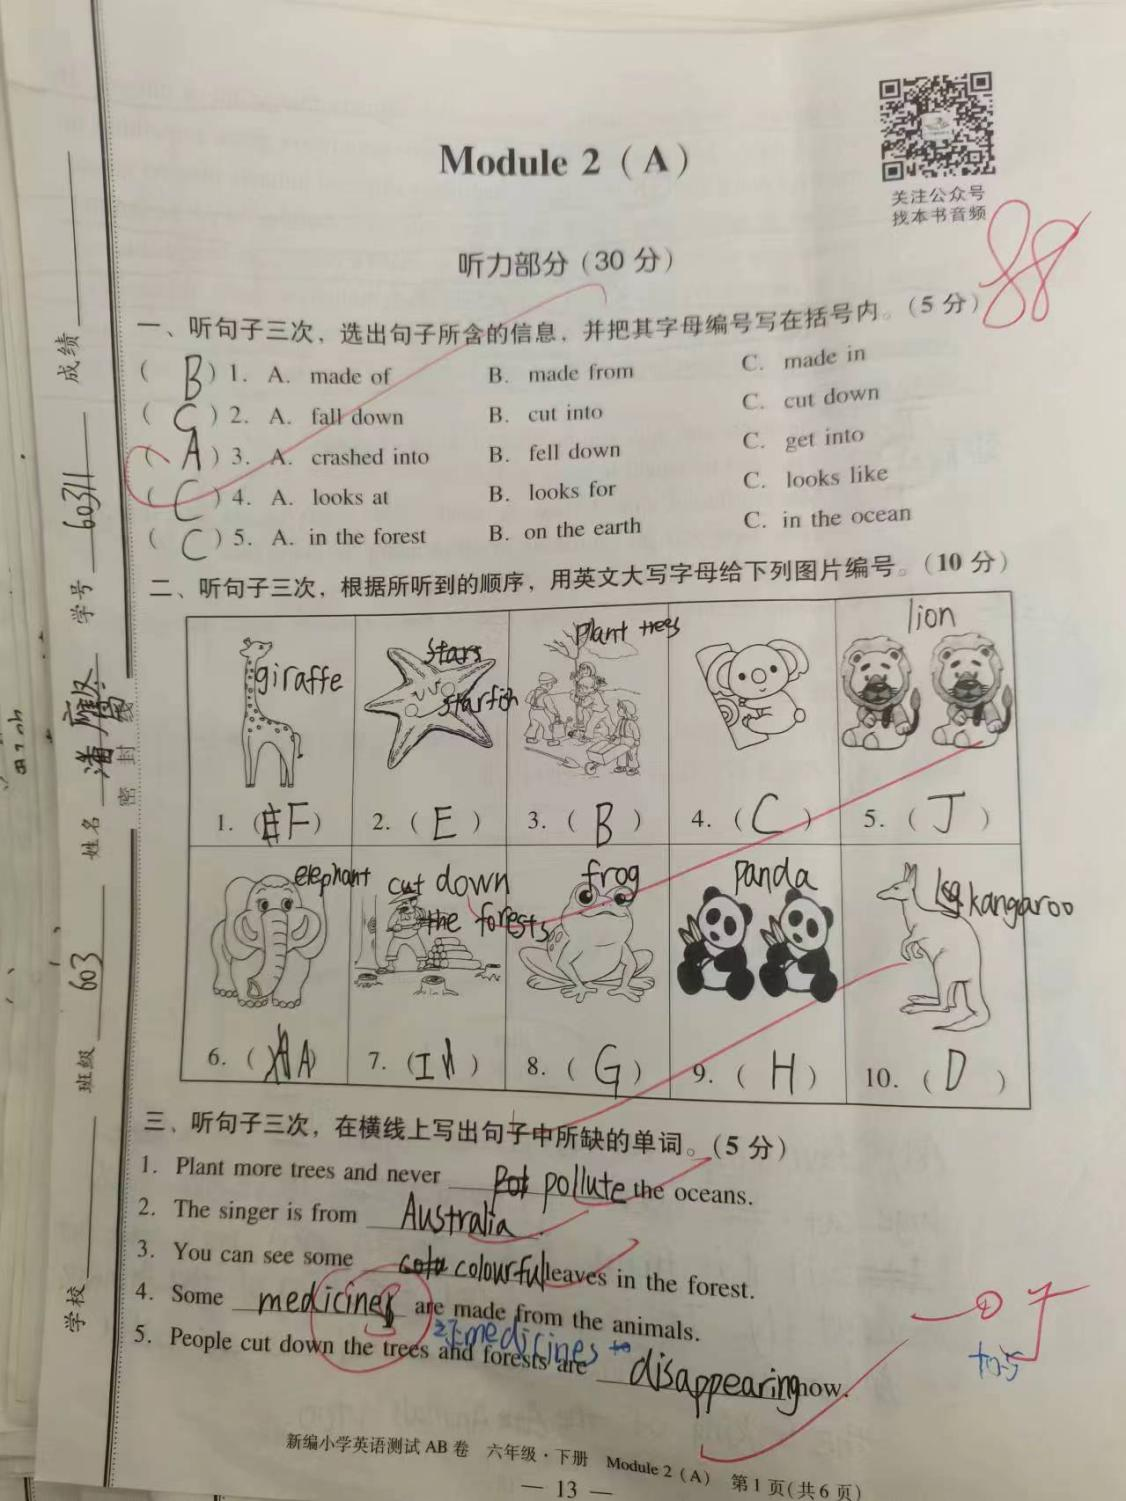 Module 2 ( A )
关注公众号
找本书音频
88
听力部分 (30 分)
一、听句子三次，选出句子所含的信息，并把其字母编号写在括号内。(5 分)
( B ) 1. A. made of B. made from C. made in
( C ) 2. A. fall down B. cut into C. cut down
( A ) 3. A. crashed into B. fell down C. get into
( C ) 4. A. looks at B. looks for C. looks like
( C ) 5. A. in the forest B. on the earth C. in the ocean
二、听句子三次，根据所听到的顺序，用英文大写字母给下列图片编号。(10 分)
giraffe stars starfish plant trees lion
1. ( F ) 2. ( E ) 3. ( B ) 4. ( C ) 5. ( J )
elephant cut down the forests frog panda kangaroo
6. ( A ) 7. ( I ) 8. ( G ) 9. ( H ) 10. ( D )
三、听句子三次，在横线上写出句子中所缺的单词。(5 分)
1. Plant more trees and never pollute the oceans.
2. The singer is from Australia .
3. You can see some colourful leaves in the forest.
4. Some medicines are made from the animals.
medicines
5. People cut down the trees and forests are disappearing now.
新编小学英语测试 AB 卷 六年级·下册 Module 2 ( A ) 第 1 页(共 6 页)
— 13 —
成绩
学号 60311
姓名 潘
班级 603
学校
密 封 线